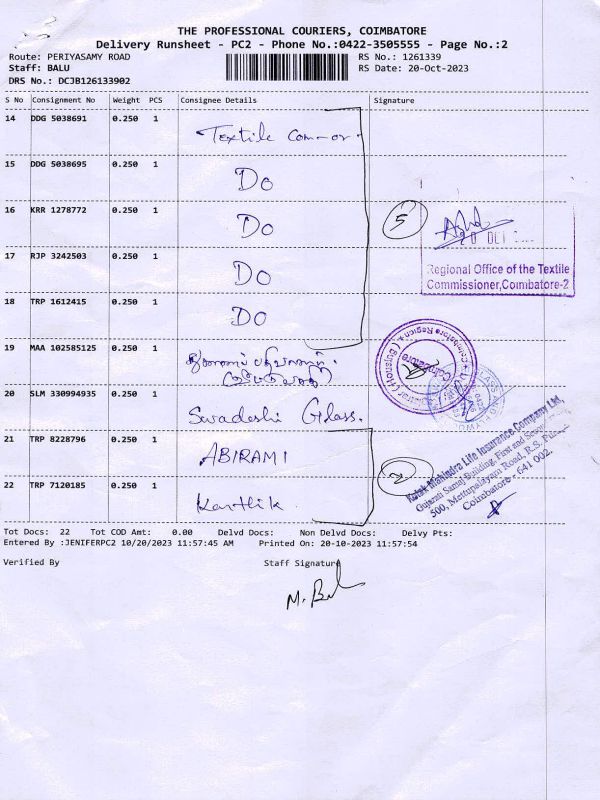 THE PROFESSIONAL COURIERS, COIMBATORE
Delivery Runsheet - PC2 - Phone No.:0422-3505555 - Page No.:2
Route: PERIYASAMY ROAD
RS No.: 1261339
Staff: BALU
RS Date: 20-Oct-2023
DRS No.: DCJB126133902
S No Consignment No Weight PCS Consignee Details Signature
14 DDG 5038691 0.250 1 Textile
15 DDG 5038695 0.250 1 Do
16 KRR 1278772 0.250 1 Do
5
20 OCT
17 RJP 3242503 0.250 1 Do
Regional Office of the Textile
Commissioner,Coimbatore-2
18 TRP 1612415 0.250 1 Do
19 MAA 102585125 0.250 1
(Housing) * Coimbatore Region *
Coimbatore
20 SLM 330994935 0.250 1 Swadeshi Glass.
21 TRP 8228796 0.250 1 ABIRAMI
2
22 TRP 7120185 0.250 1 Karthik
Kotak Mahindra Life Insurance Company Ltd,
Gujarati Samaj Building, First and
500, Mettupalayam Road, R.S.
Coimbatore - 641 002.
Tot Docs: 22 Tot COD Amt: 0.00 Delvd Docs: Non Delvd Docs: Delvy Pts:
Entered By :JENIFERPC2 10/20/2023 11:57:45 AM Printed On: 20-10-2023 11:57:54
Verified By Staff Signature